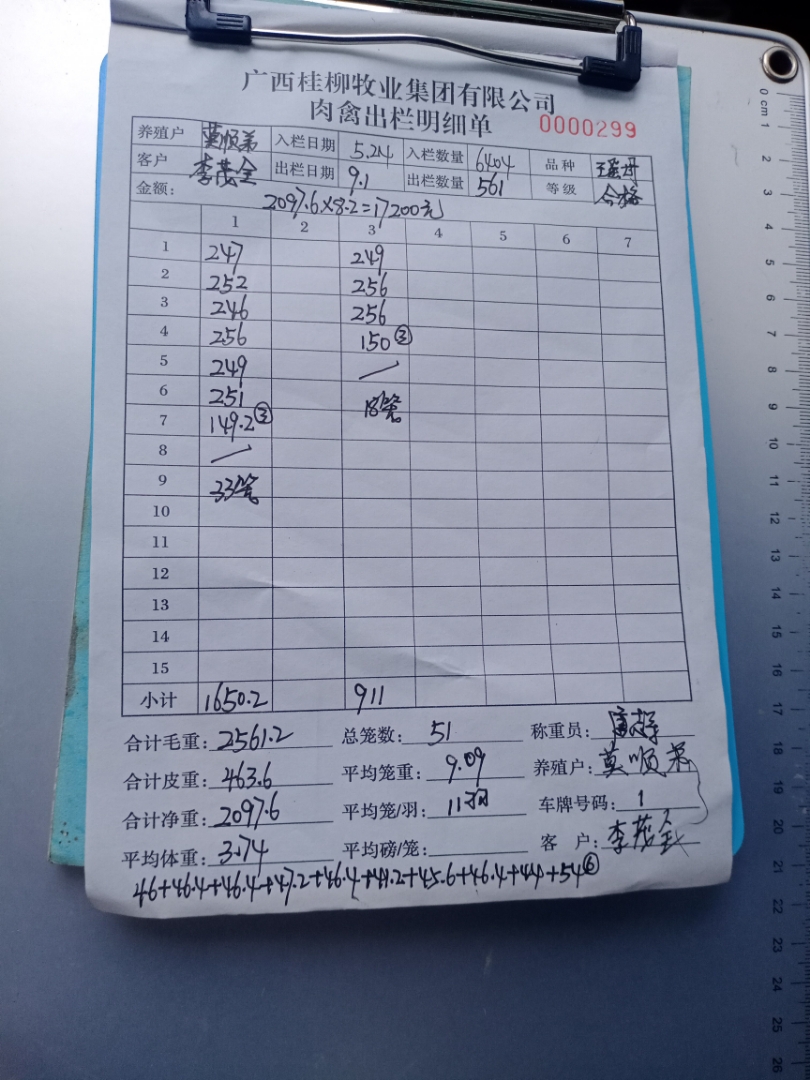 广西桂柳牧业集团有限公司
肉禽出栏明细单 0000299
养殖户 莫顺弟 入栏日期 5.24 入栏数量 6404 品种
客户 李茂全 出栏日期 9.1 出栏数量 561 等级 合格
金额: 2097.6×8.2=17200元
1 2 3 4 5 6 7
1 247 249
2 252 256
3 246 256
4 256 150③
5 249 /
6 251 18笼
7 149.2③
8 /
9 33笼
10
11
12
13
14
15
小计 1650.2 911
合计毛重: 2561.2 总笼数: 51 称重员:
合计皮重: 463.6 平均笼重: 9.09 养殖户: 莫顺弟
合计净重: 2097.6 平均笼/羽: 11羽 车牌号码: 1
平均体重: 3.74 平均磅/笼: 客 户: 李茂全
46+46.4+46.4+47.2+46.4+41.2+45.6+46.4+44+54⑥
0 cm 1
2
3
4
5
6
7
8
9
10
11
12
13
14
15
16
17
18
19
20
21
22
23
24
25
26